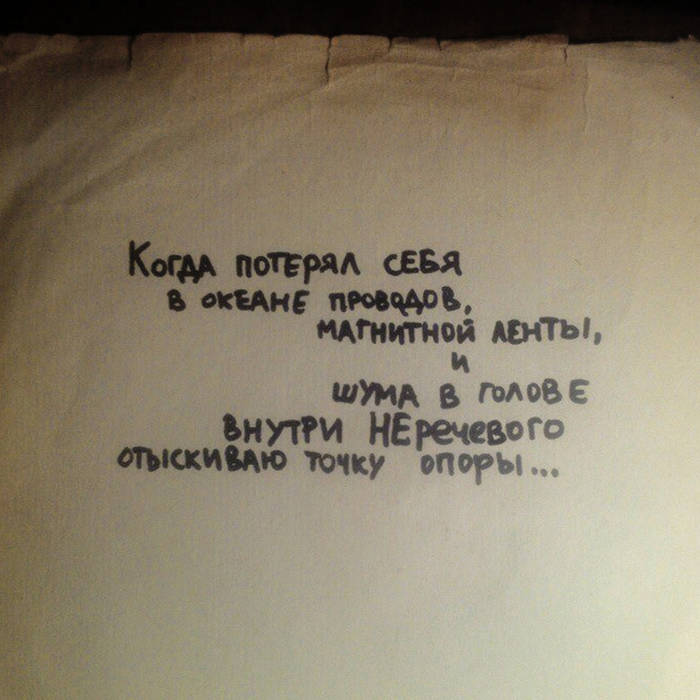 Когда потерял себя
в океане проводов,
магнитной ленты,
и
шума в голове
внутри НЕречевого
отыскиваю точку опоры...